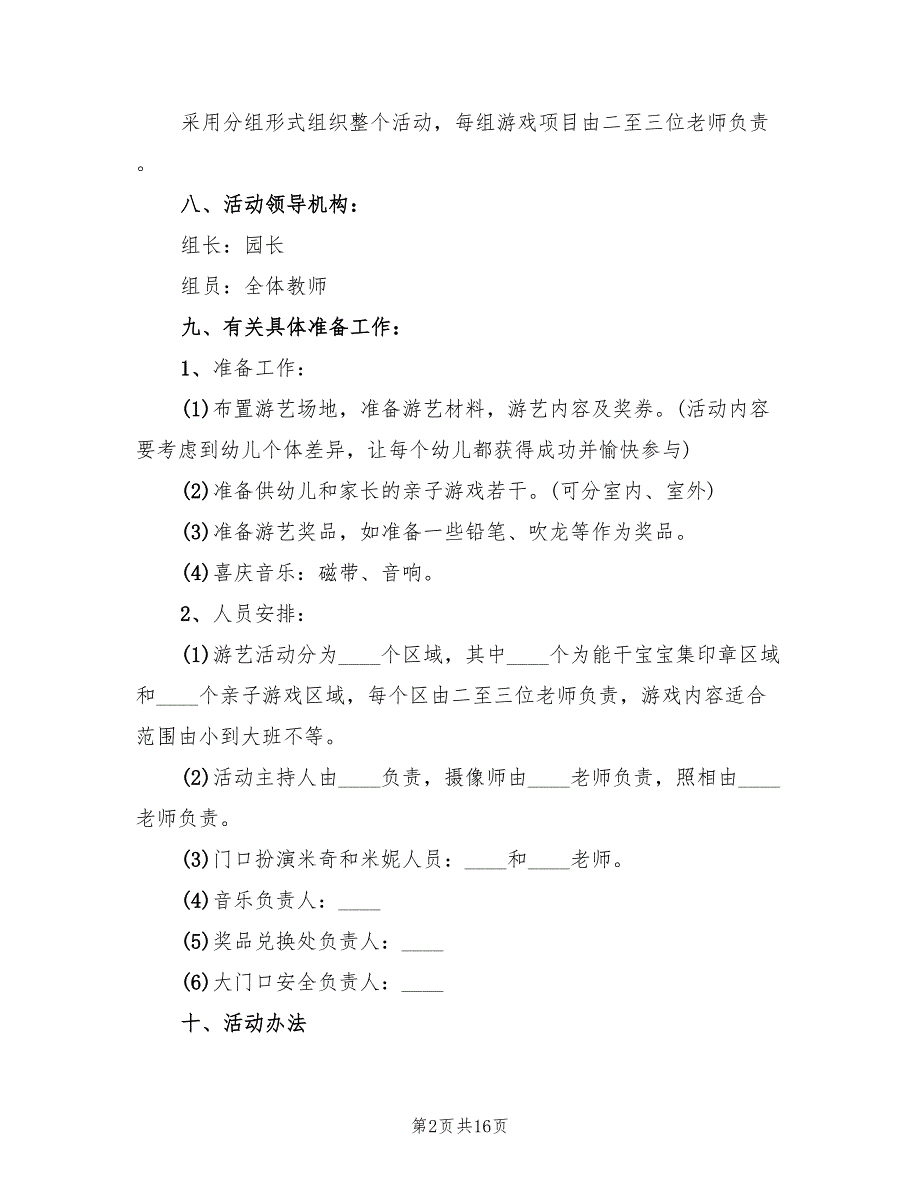 采用分组形式组织整个活动，每组游戏项目由二至三位老师负责
。
八、活动领导机构：
组长：园长
组员：全体教师
九、有关具体准备工作：
1、准备工作：
(1)布置游艺场地，准备游艺材料，游艺内容及奖券。(活动内容
要考虑到幼儿个体差异，让每个幼儿都获得成功并愉快参与)
(2)准备供幼儿和家长的亲子游戏若干。(可分室内、室外)
(3)准备游艺奖品，如准备一些铅笔、吹龙等作为奖品。
(4)喜庆音乐：磁带、音响。
2、人员安排：
(1)游艺活动分为____个区域，其中____个为能干宝宝集印章区域
和____个亲子游戏区域，每个区由二至三位老师负责，游戏内容适合
范围由小到大班不等。
(2)活动主持人由____负责，摄像师由____老师负责，照相由____
老师负责。
(3)门口扮演米奇和米妮人员：____和____老师。
(4)音乐负责人：____
(5)奖品兑换处负责人：____
(6)大门口安全负责人：____
十、活动办法
第2页共16页